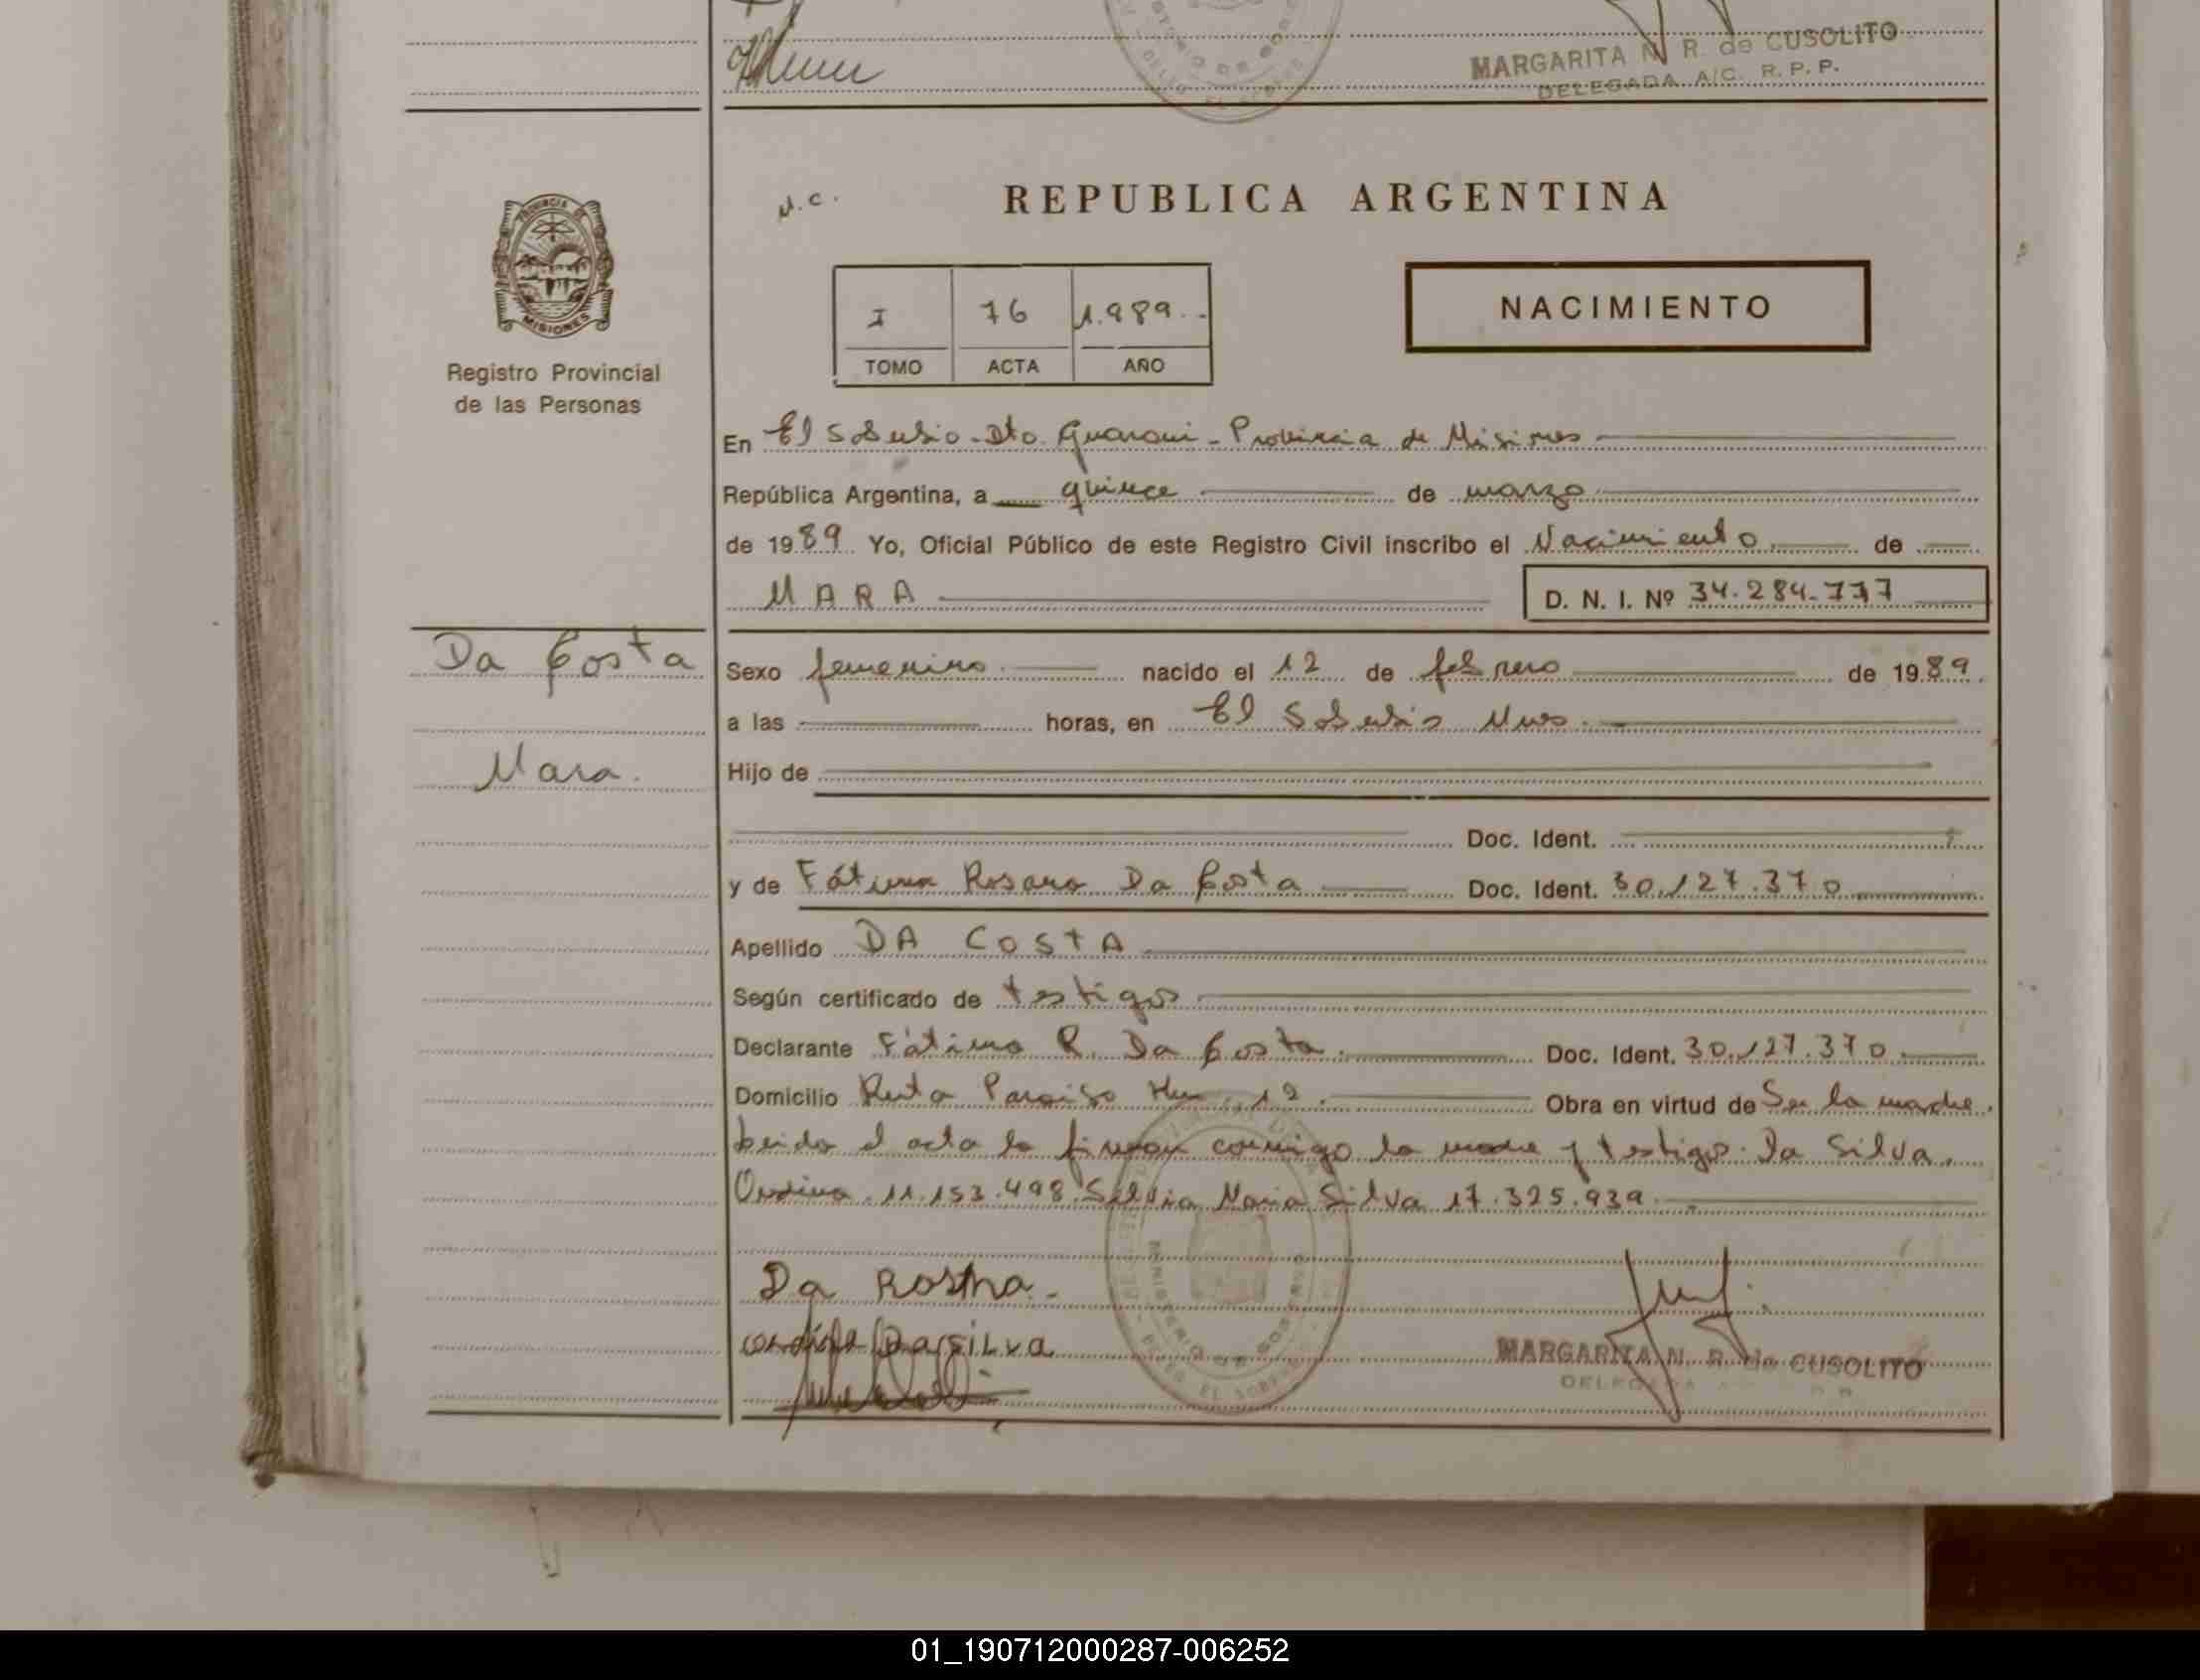 MARGARITA N. R. de CUSOLITO
DELEGADA A/C. R. P. P.
PROVINCIA DE
MISIONES
Registro Provincial
de las Personas
Da Costa
Mara.
M.C.
REPUBLICA ARGENTINA
I 76 1.989..
TOMO ACTA AÑO
NACIMIENTO
En El Soberbio - Dto. Guaraní - Provincia de Misiones
República Argentina, a quince de marzo
de 1989 Yo, Oficial Público de este Registro Civil inscribo el Nacimiento de
MARA D. N. I. Nº 34.284.777
Sexo femenino nacido el 12 de febrero de 1989.
a las horas, en El Soberbio Mnes.
Hijo de
Doc. Ident.
y de Fátima Rosara Da Costa Doc. Ident. 30.127.370
Apellido DA COSTA
Según certificado de testigos
Declarante Fátima R. Da Costa. Doc. Ident. 30.127.370
Domicilio Ruta Paraiso Km. 12. Obra en virtud de Ser la madre.
Leida el acta la firman conmigo la madre y testigos. Da Silva.
11.153.498. Silvia Maria Silva 17.325.939.
MINISTERIO DE GOBIERNO
Da
Da SiLva
MARGARITA N. R. de CUSOLITO
01_190712000287-006252